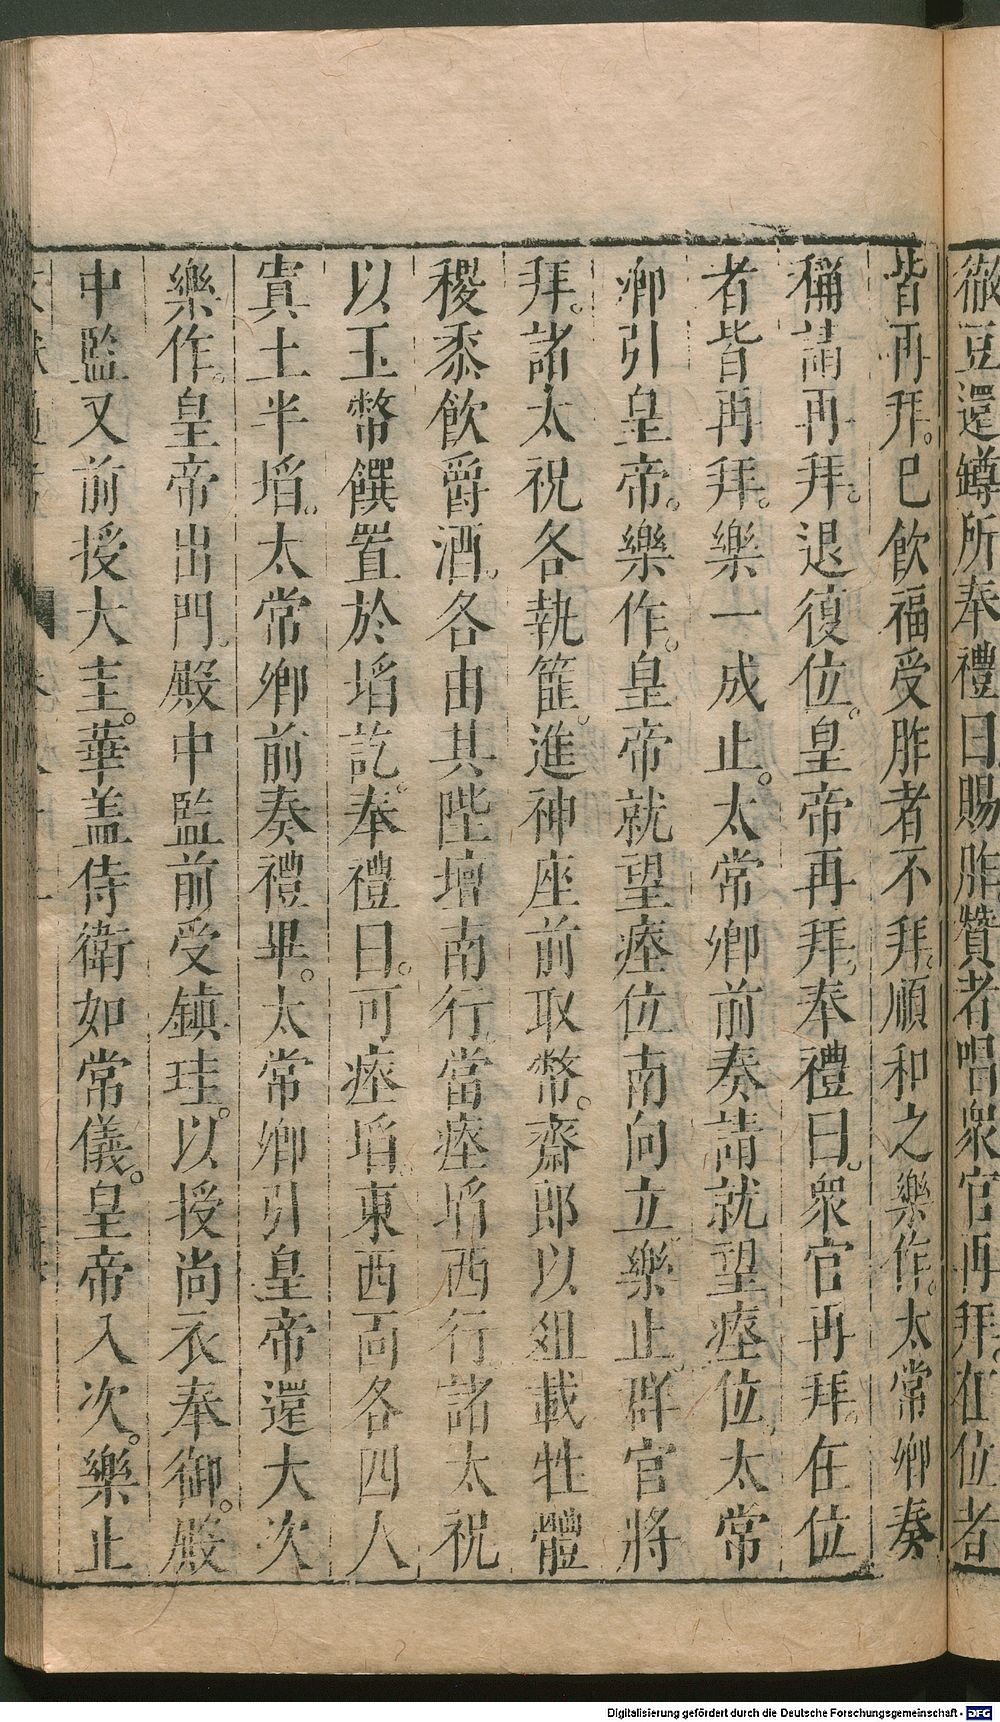 徹豆還罇所奉禮曰賜胙贊者唱衆官再拜在位者
皆再拜已飲福受胙者不拜順和之樂作太常卿奏
稱請再拜退復位皇帝再拜奉禮曰衆官再拜在位
者皆再拜樂一成止太常卿前奏請就望瘞位太常
卿引皇帝樂作皇帝就望瘞位南向立樂止群官將
拜諸太祝各執篚進神座前取幣齋郎以俎載牲體
稷黍飲爵酒各由其陛壇南行當瘞埳西行諸太祝
以玉幣饌置於埳訖奉禮曰可瘞埳東西面各四人
寘土半埳太常卿前奏禮畢太常卿引皇帝還大次
樂作皇帝出門殿中監前受鎮珪以授尚衣奉御殿
中監又前授大圭華盖侍衛如常儀皇帝入次樂止
Digitalisierung gefördert durch die Deutsche Forschungsgemeinschaft - DFG